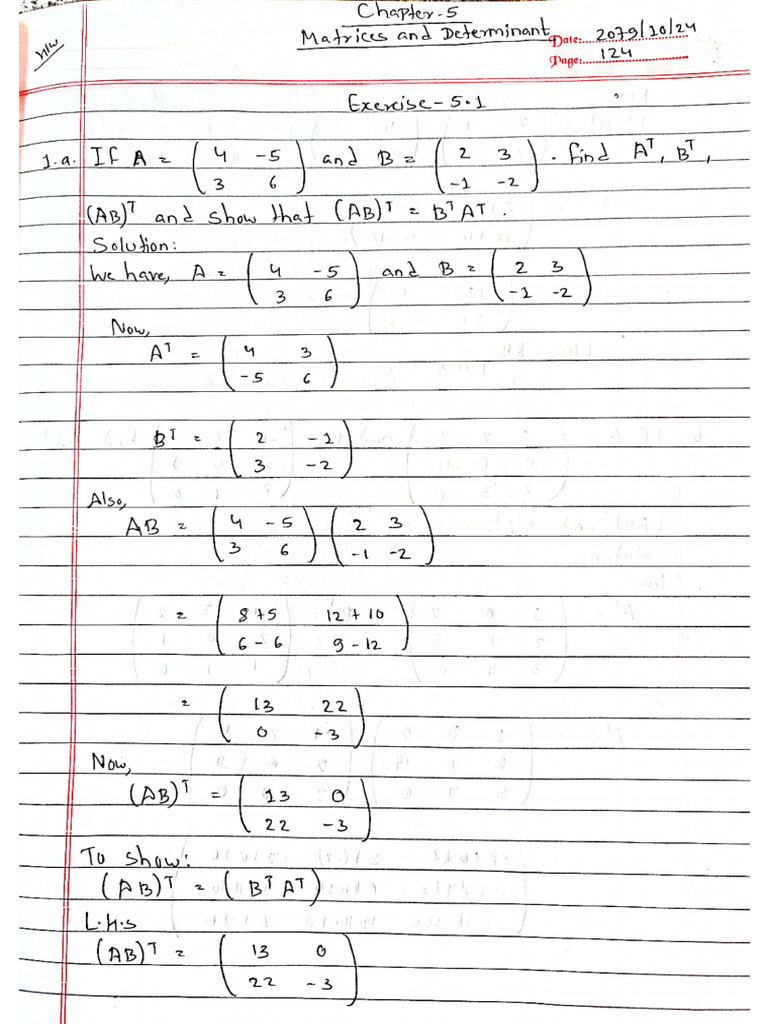 Chapter-5
Matrices and Determinant
H/W
Date: 2079/10/24
Page: 124
Exercise-5.1
1.a. If A = ( 4 -5 ) and B = ( 2 3 ) . find Aᵀ, Bᵀ,
( 3 6 ) ( -1 -2 )
(AB)ᵀ and show that (AB)ᵀ = BᵀAᵀ.
Solution:
We have, A = ( 4 -5 ) and B = ( 2 3 )
( 3 6 ) ( -1 -2 )
Now,
Aᵀ = ( 4 3 )
( -5 6 )
Bᵀ = ( 2 -1 )
( 3 -2 )
Also,
AB = ( 4 -5 ) ( 2 3 )
( 3 6 ) ( -1 -2 )
= ( 8+5 12+10 )
( 6-6 9-12 )
= ( 13 22 )
( 0 -3 )
Now,
(AB)ᵀ = ( 13 0 )
( 22 -3 )
To show:
(AB)ᵀ = (BᵀAᵀ)
L.H.S
(AB)ᵀ = ( 13 0 )
( 22 -3 )